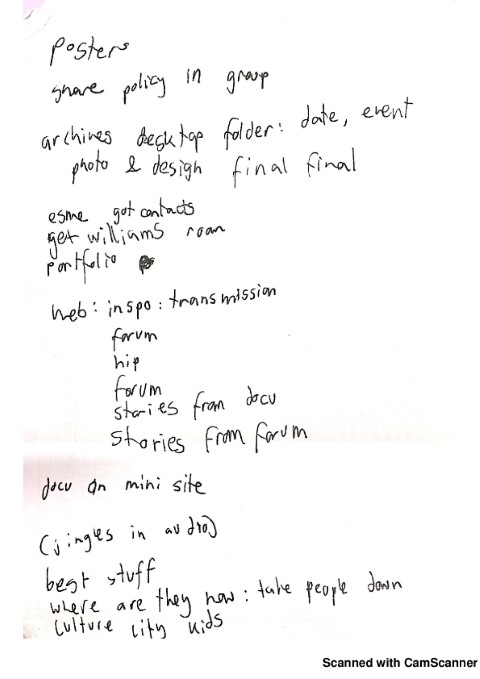 posters
share policy in group
archives desktop folder: date, event
photo & design final final
esme got contacts
get williams roan
portfolio
web: inspo: transmission
forum
hip
forum
stories from docu
stories from forum
docu on mini site
(jingles in audio)
best stuff
where are they now: take people down
culture city kids
Scanned with CamScanner